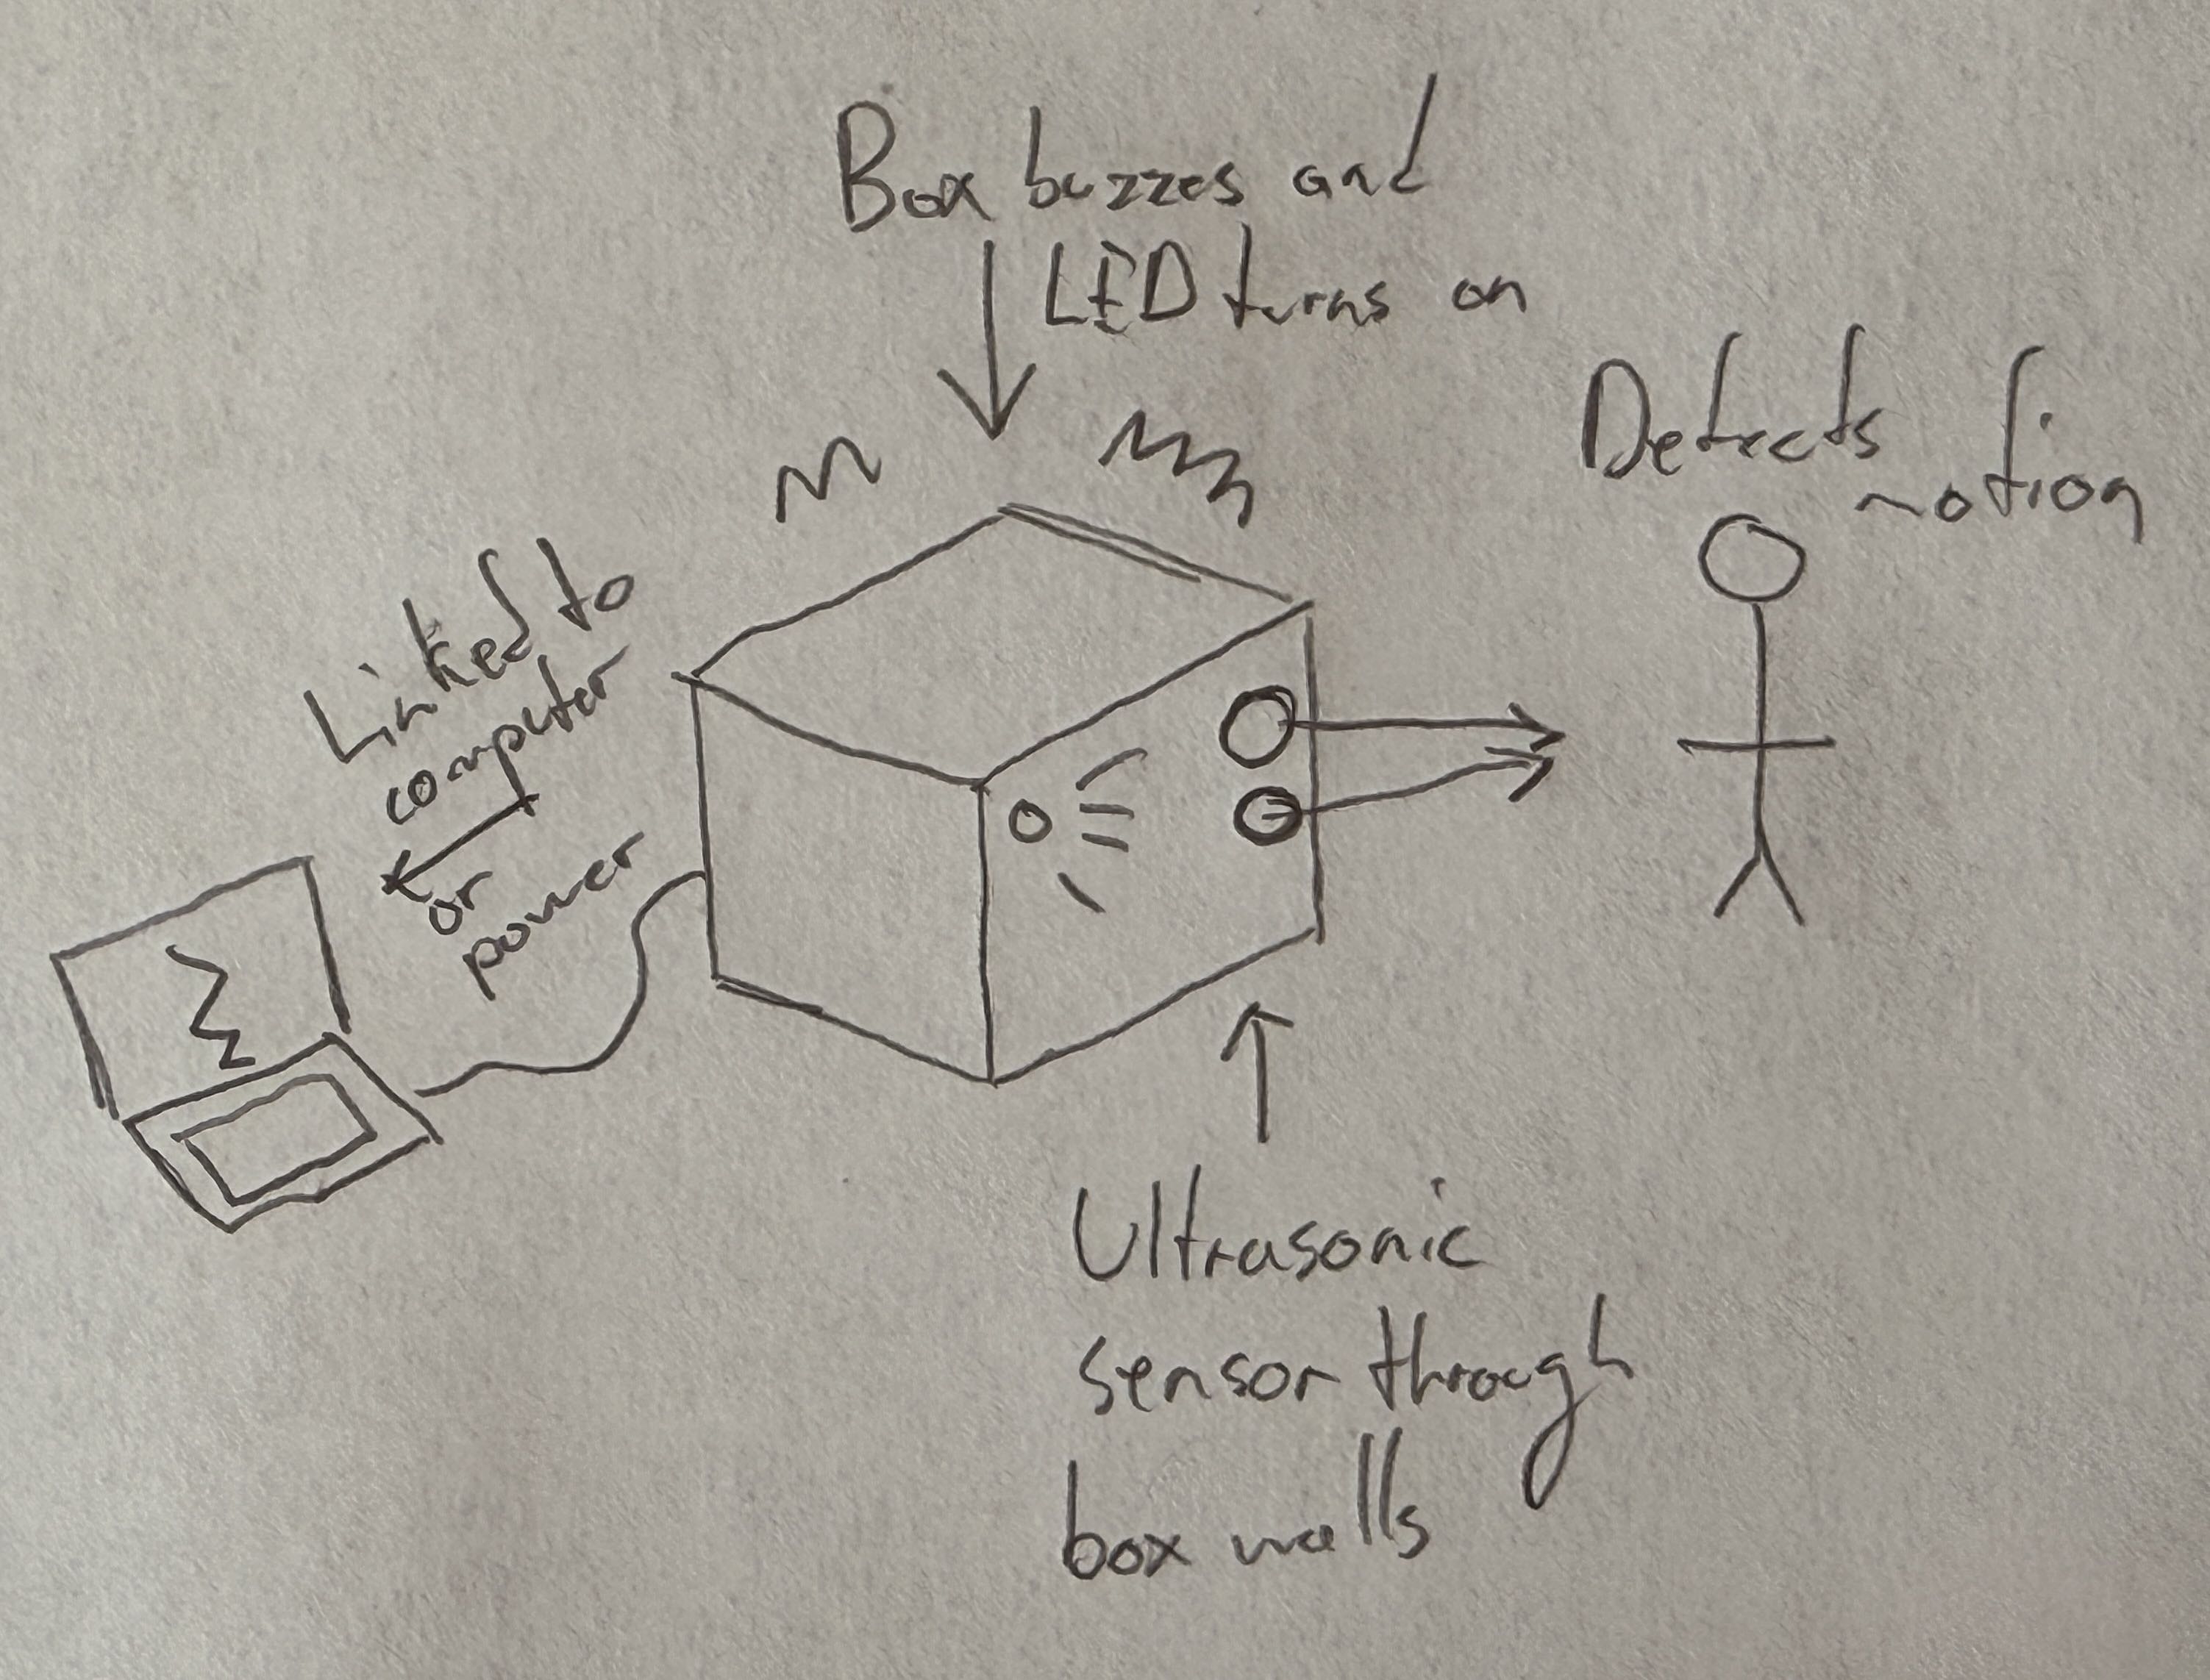 Box buzzes and
LED turns on
Detects
motion
Linked to
computer
or
power
Ultrasonic
sensor through
box walls